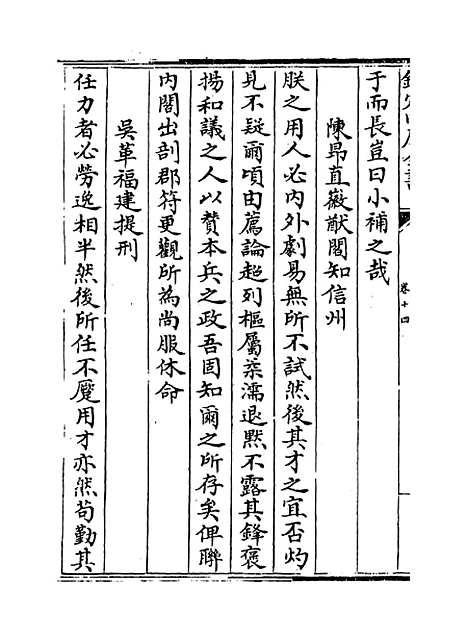 欽定四庫全書
卷十四
于而長豈曰小補之哉
陳昂直徽猷閣知信州
朕之用人必内外劇易無所不試然後其才之宜否灼
見不疑爾頃由薦論超列樞屬柒濡退黙不露其鋒褒
揚和議之人以賛本兵之政吾固知爾之所存矣俾聨
内閣出剖郡符更觀所為尚服休命
吳革福建提刑
任力者必勞逸相半然後所任不蹷用才亦然茍勤其